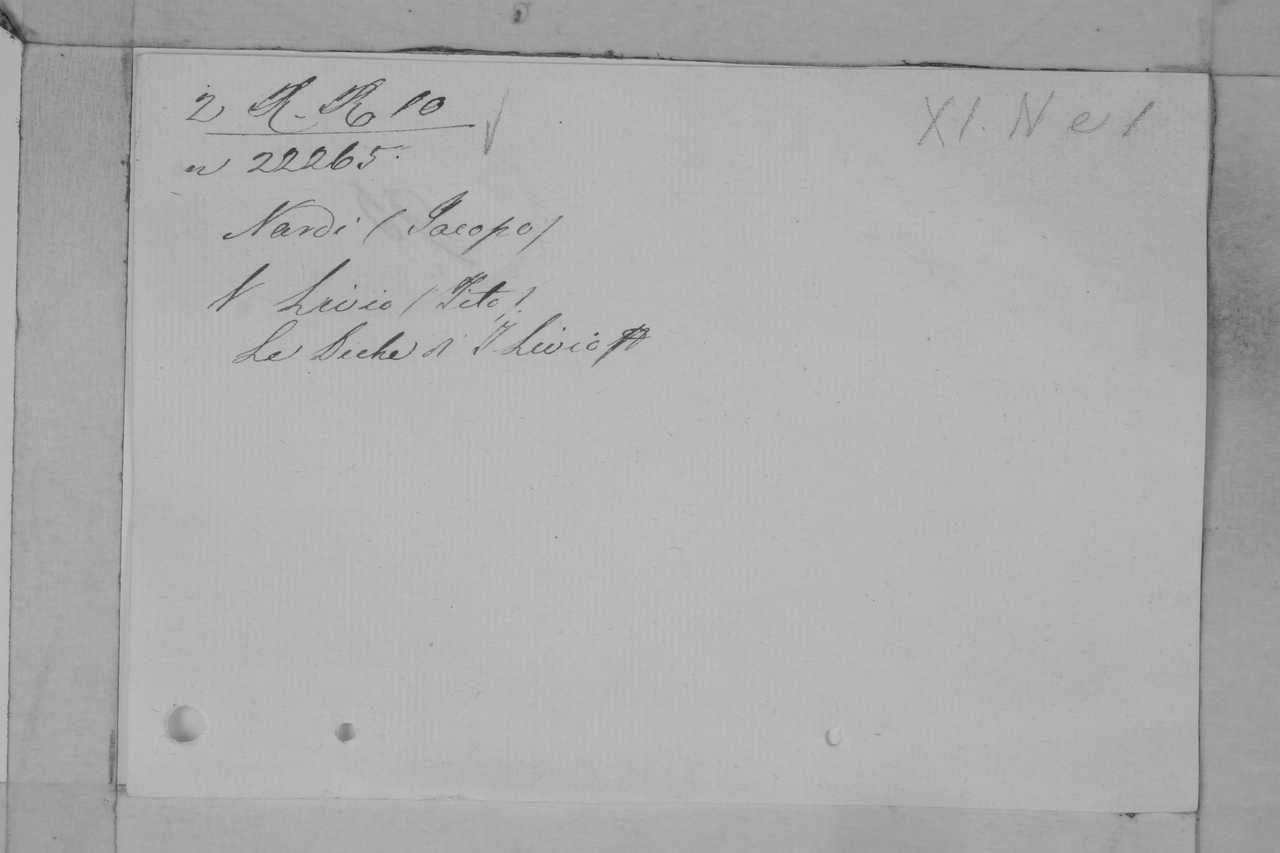 2 R. R. 10
XI. N e 1
n 22265.
Nardi (Jacopo)
V Livio (Tito).
Le Deche di T. Livio